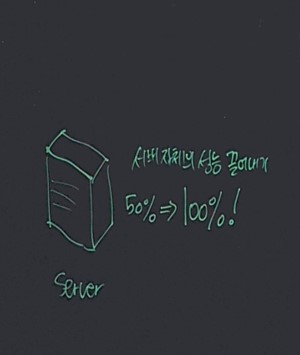 서버 자체의 성능 끌어내기
50% ⇒ 100%!
Server